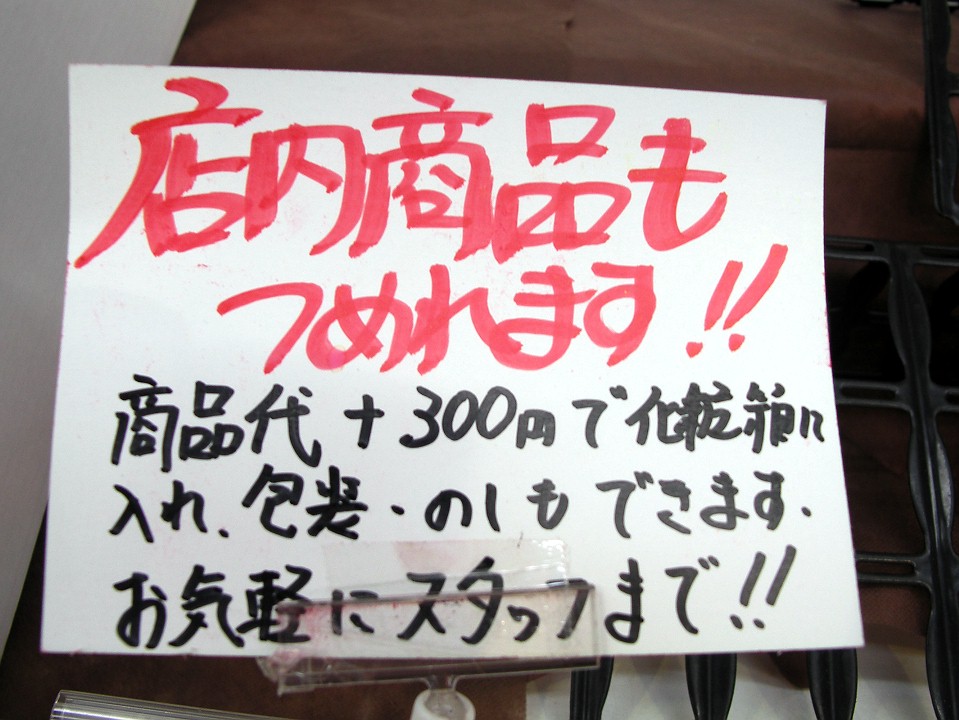 店内商品も
つめれます!!
商品代+300円で化粧箱に
入れ、包装・のしもできます。
お気軽にスタッフまで!!